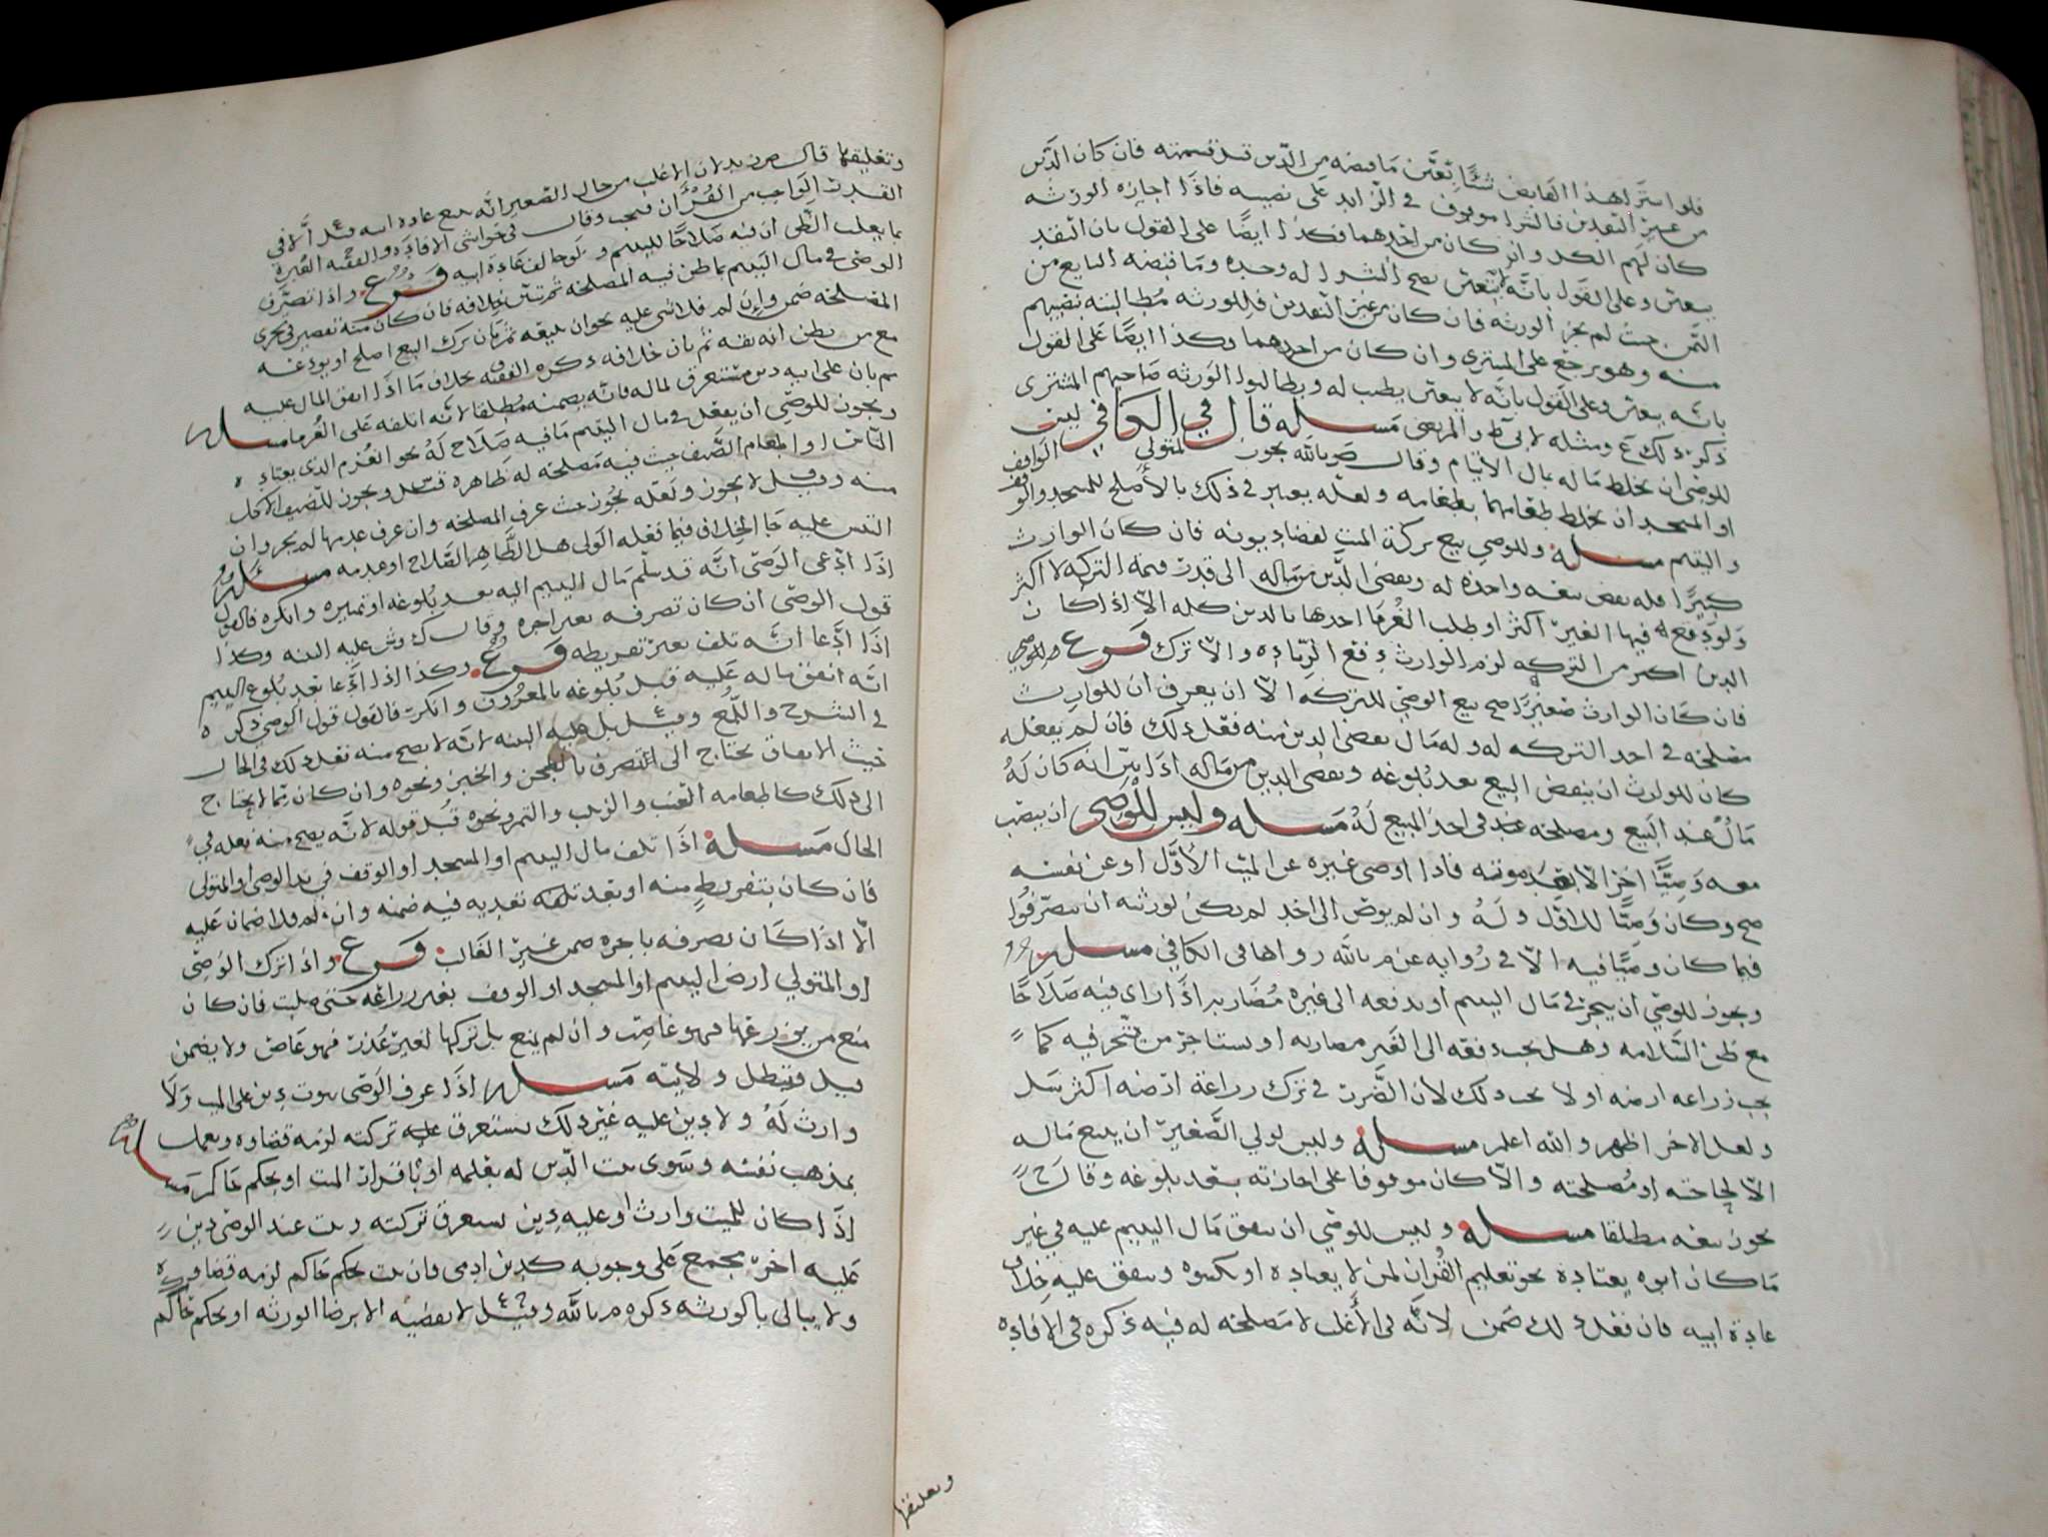 فلو استرا هذا القابض شيئا تعين ما قبضه من الدين قد قسمته فان كان الدين
من غير النقدين فالشرا موقوف في الزايد على نصيبه فاذا اجازه الورثه
كان لهم الكل وان كان من احدهما فكذا ايضا على القول بان النقد
يتعين وعلى القول بانه لا يتعين يصح الشرا له وحده وما قبضه البايع من
الثمن حيث لم يجز الورثه فان كان من غير النقدين فللورثه مطالبته بنصيبهم
منه وهو يرجع على المشتري وان كان من احدهما وكذا ايضا على القول
بانه يتعين وعلى القول بانه لا يتعين يطيب له ويطالبوا الورثه صاحبهم المشتري
ذكر ذلك ع ومثله لابي ط والمرتضى مسله قال في الكافي ليس
للوصي ان يخلط ماله بمال الايتام وقال م بالله يجوز لمتولي الواقف
او المسجد ان يخلط طعامهما بطعامه ولعله يعتبر في ذلك بالاصلح للمسجد والوقف
واليتيم مسله وللوصي بيع تركة الميت لقضا ديونه فان كان الوارث
كبيرا فله نقض بيعه واخذه له ويقضي الدين من ماله الى قدر قيمة التركه لا اكثر
ولو دفع له فيها الغير اكثر او طلب الغرما اخذها بالدين كله الا اذا كان
الدين اكثر من التركه لزم الوارث دفع الزياده والا ترك فرع وللوصي
فان كان الوارث صغيرا صح بيع الوصي للتركه الا ان يعرف ان للوارث
مصلحه في اخذ التركه له وله مال يقضي الدين منه فعل ذلك فان لم يفعله
كان للوارث ان ينقض البيع بعد بلوغه ويقضي الدين من ماله اذا بين انه كان له
مال عند البيع ومصلحه عند في اخذ المبيع له مسله وليس للوصي ان ينصب
معه وصيا اخر الا بعد موته فاذا اوصى غيره عن الميت الاول او عن نفسه
صح وكان وصيا للاول وله وان لم يوص الى احد لم يكن لورثته ان يتصرفوا
فيما كان وصيا فيه الا في روايه عن م بالله رواها في الكافي مسله
ويجوز للوصي ان يتجر في مال اليتيم او يدفعه الى غيره مضاربه اذا راى فيه صلاحا
مع ظن السلامه وهل يجب دفعه الى الغير مضاربه او يستاجر من يتجر فيه كما
يجب زراعه ارضه او لا يجب ذلك لان الضرر في ترك زراعة ارضه اكثر
ولعل الاخر اظهر والله اعلم مسله وليس لولي الصغير ان يبيع ماله
الا لحاجته او مصلحته والا كان موقوفا على اجازته بعد بلوغه وقال
يجوز بيعه مطلقا مسله وليس للوصي ان ينفق مال اليتيم عليه في غير
ما كان ابوه يعتاده نحو تعليم القران لمن لا يعتاده او يكسوه وينفق عليه خلاف
عادة ابيه فان فعل ذلك ضمن لانه في الاغلب لا مصلحه له فيه ذكره في الافاده
وتعليقها
وتعليقها قال لان الاغلب من حال الصغير انه مع عادة ابيه الا في
القدر الواجب من القران فيجب وقال في حواشي الافاده والفقيه العبره
بما يغلب الظن ان فيه صلاحا لليتيم ولو خالف عادة ابيه فرع واذا تصرف
الوصي في مال اليتيم بما ظن فيه المصلحه ثم تبين خلافه فان كان منه تقصير في تحري
المصلحه ضمن وان لم فلا شي عليه نحو ان يبيعه ثم بان ترك البيع اصلح او يودعه
مع من يظن انه ثقه ثم بان خلافه ذكره الفقيه بخلاف ما اذا انفق المال عليه
ثم بان على ابيه دين مستغرق لماله فانه يضمنه مطلقا لانه اتلفه على الغرما مسله
ويجوز للوصي ان يفعل في مال اليتيم ما فيه صلاح له نحو الغرم الذي يعتاده
الناس او اطعام الضيف حيث فيه مصلحه له ظاهره ويجوز للضيف الاكل
منه وقيل لا يجوز ولعله يجوز حيث عرف المصلحه وان عرف عدمها لم يجز وان
التبس عليه جا الخلاف فيما فعله الولي هل الظاهر الصلاح او عدمه مسله
اذا ادعى الوصي انه قد سلم مال اليتيم اليه بعد بلوغه او تمييزه وانكره فالقول
قول الوصي ان كان تصرفه بغير اجره وقال ك وش عليه البينه وكذا
اذا ادعا انه تلف بغير تفريطه فرع وكذا اذا ادعا بعد بلوغ اليتيم
انه انفق ماله عليه قبل بلوغه بالمعروف وانكر فالقول قول الوصي ذكره
في الشرح واللمع وقيل بل عليه البينه لانه لا يصح منه فعل ذلك في الحال
حيث الانفاق يحتاج الى التصرف بالطحن والخبز ونحوه وان كان مما لا يحتاج
الى ذلك كاطعامه العنب والزبيب والتمر ونحوه قبل قوله لانه يصح منه فعله في
الحال مسله اذا تلف مال اليتيم او المسجد او الوقف في يد الوصي او المتولي
فان كان بتفريط منه او بعد تعديه فيه ضمنه وان لم فلا ضمان عليه
الا اذا كان تصرفه باجره ضمن غير الغالب فرع واذا ترك الوصي
او المتولي ارض اليتيم او المسجد او الوقف بغير زراعه حتى صلبت فان كان
منع من يزرعها فهو غاصب وان لم يمنع بل تركها لغير عذر فهو عاص ولا يضمن
قيل وتبطل ولايته مسله اذا عرف الوصي ثبوت دين على الميت ولا
وارث له ولا دين عليه غير ذلك يستغرق تركته لزمه قضاوه ويعمل
بمذهب نفسه وسوى ثبت الدين له بعلمه او باقرار الميت او بحكم حاكم مسله
اذا كان للميت وارث او عليه دين يستغرق تركته وثبت عند الوصي دين
عليه اخر مجمع على وجوبه كدين ادمي فان ثبت بحكم حاكم لزمه قضاوه
ولا يبالي بالورثه ذكره م بالله وقيل لا يقضيه الا برضا الورثه او بحكم حاكم